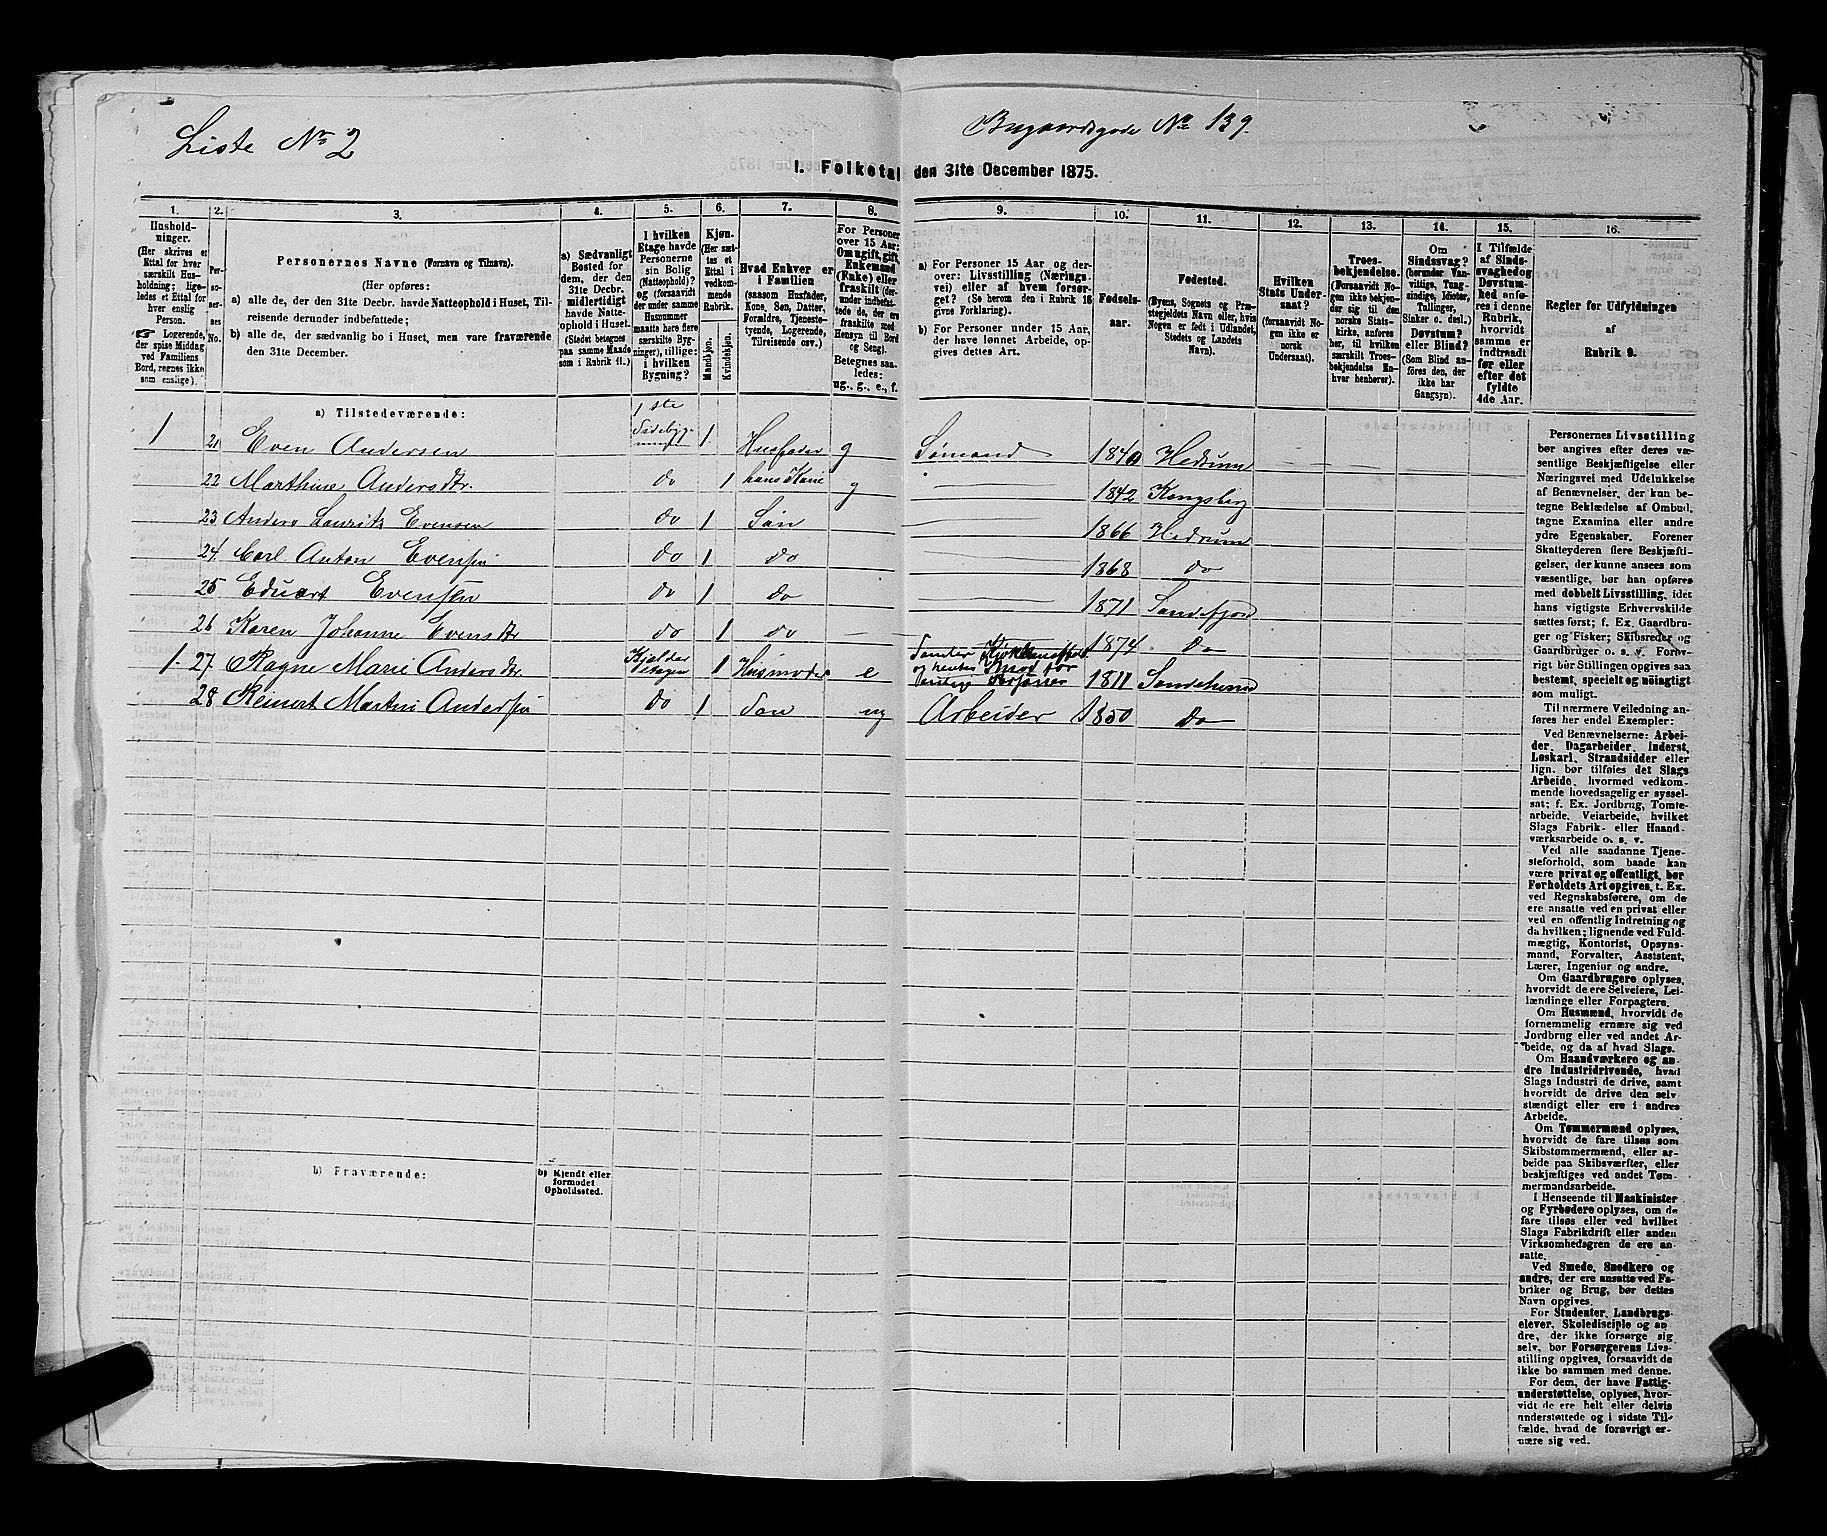 Liste No 2
Bugaardsgade No 139.
I. Folketal den 31te December 1875.
1. 2. 3. 4. 5. 6. 7. 8. 9. 10. 11. 12. 13. 14. 15. 16.
Husholdninger.
(Her skrives et Ettal for hver særskilt Husholdning; ligeledes et Ettal for hver enslig Person.
☞ Logerende, der spise Middag ved Familiens Bord, regnes ikke som enslige).
Personernes No.
Personernes Navne (Fornavn og Tilnavn).
(Her opføres:
a) alle de, der den 31te Decbr. havde Natteophold i Huset, Tilreisende derunder indbefattede;
b) alle de, der sædvanlig bo i Huset, men vare fraværende den 31te December.
a) Sædvanligt Bosted for dem, der den 31te Decbr. midlertidigt havde Natteophold i Huset. (Stedet betegnes paa samme Maade som i Rubrik 11.)
I hvilken Etage havde Personerne sin Bolig (Natteophold)? og (forsaavidt der under samme Husnummer maatte høre flere særskilte Bygninger), tillige: i hvilken Bygning?
Kjøn. (Her sættes et Ettal i vedkommende Rubrik.
Mandkjøn. Kvindekjøn.
Hvad Enhver er i Familien
(saasom Husfader, Kone, Søn, Datter, Forældre, Tjenestetyende, Logerende, Tilreisende osv.)
For Personer over 15 Aar; Om ugift, gift, Enkemand (Enke) eller fraskilt (derunder indbefattede de, der ere fraskilte med Hensyn til Bord og Seng). Betegnes saaledes: ug., g., e., f.
a) For Personer 15 Aar og derover: Livsstilling (Næringsvei) eller af hvem forsørget? (Se herom den i Rubrik 16 givne Forklaring).
b) For Personer under 15 Aar, der have lønnet Arbeide, opgives dettes Art.
Fødselsaar.
Fødested.
(Byens, Sognets og Præstegjeldets Navn eller, hvis Nogen er født i Udlandet, Stedets og Landets Navn).
Hvilken Stats Undersaat?
(forsaavidt Nogen ikke er norsk Undersaat).
Troesbekjendelse.
(Forsaavidt Nogen ikke bekjender sig til den norske Statskirke, anføres her, til hvilken særskilt Troesbekjendelse Enhver henhører).
Om Sindssvag? (herunder Vanvittige, Tungsindige, Idioter, Tullinger, Sinker o. desl.) Døvstum? eller Blind? (Som Blind anføres den, der ikke har Gangsyn).
I Tilfælde af Sindssvaghed og Døvstumhed anføres i denne Rubrik, hvorvidt samme er indtraadt før eller efter det fyldte 4de Aar.
Regler for Udfyldningen af Rubrik 9.
a) Tilstedeværende:
1 21 Even Andersen 1ste Sidebygningen 1 Husfader g Sømand 1840 Hedrum
22 Marthine Andersdtr. do 1 hans Kone g 1842 Kongsberg
23 Anders Lauritz Evensen do 1 Søn 1866 Hedrum
24. Carl Anton Evensen do 1 do 1868 do
25 Eduart Evensen do 1 do 1871 Sandefjord
26 Karen Johanne Evensdtr do 1 do 1874 do
1. 27. Ragne Marie Andersdtr. Kjelder Etagen 1 Husmoder e Samler Kjøkkenaffald og henter for Personer 1811 Sandeherred
28 Reinert Martin Andersen do 1 Søn ug Arbeider 1850 do
b) Fraværende:
b) Kjendt eller formodet Opholdssted.
Personernes Livsstilling
bør angives efter deres væ-
sentlige Beskjæftigelse eller
Næringsvei med Udelukkelse
af Benævnelser, der kun be-
tegne Beklædelse af Ombud,
tagne Examina eller andre
ydre Egenskaber. Forener
Skatteyderen flere Beskjæfti-
gelser, der kunne ansees som
væsentlige, bør han opføres
med dobbelt Livsstilling, idet
hans vigtigste Erhvervskilde
sættes først; f. Ex. Gaardbru-
ger og Fisker; Skibsreder og
Gaardbruger o. s. v. Forøv-
rigt bør Stillingen opgives saa
bestemt, specielt og nöiagtigt
som muligt.
Til nærmere Veiledning an-
føres her endel Exempler:
Ved Benævnelserne: Arbei-
der, Dagarbeider, Inderst,
Løskarl, Strandsidder eller
lign. bør tilføies det Slags
Arbeide, hvormed vedkom-
mende hovedsagelig er syssel-
sat; f. Ex. Jordbrug, Tomte-
arbeide, Veiarbeide, hvilket
Slags Fabrik- eller Haand-
værksarbeide o. s. v.
Ved alle saadanne Tjene-
steforhold, som baade kan
være privat og offentligt, bør
Forholdets Art opgives, t. Ex.
ved Regnskabsførere, om de
ere ansatte ved en privat eller
ved en offentlig Indretning og
da hvilken; lignende ved Fuld-
mægtig, Kontorist, Opsyns-
mand, Forvalter, Assistent,
Lærer, Ingeniør og andre.
Om Gaardbrugere oplyses,
hvorvidt de ere Selveiere, Lei-
lændinge eller Forpagtere.
Om Husmænd, hvorvidt de
fornemmelig ernære sig ved
Jordbrug eller ved andet Ar-
beide, og da af hvad Slags.
Om Haandværkere og an-
dre Industridrivende, hvad
Slags Industri de drive, samt
hvorvidt de drive den selv
stændigt eller ere i andres
Arbeide.
Om Tømmermænd oplyses,
hvorvidt de fare tilsøs som
Skibstømmermænd, eller ar-
beide paa Skibsværfter, eller
beskjæftiges ved andet Tøm-
mermandsarbeide.
I Henseende til Maskinister
og Fyrbødere oplyses, om de
fare tilsøs eller ved hvilket
Slags Fabrikdrift eller anden
Virksomhedsgren de ere an-
satte.
Ved Smede, Snedkere og
andre, der ere ansatte ved Fa-
briker og Brug, bør dettes
Navn opgives.
For Studenter, Landbrugs-
elever, Skoledisciple og an-
dre, der ikke forsørge sig
selv, bør Forsørgerens Livs-
stilling opgives, forsaavidt de
ikke bo sammen med denne.
For dem, der have Fattig-
understøttelse, oplyses, hvor-
vidt de ere helt eller delvis
understøttede og i sidste Til-
fælde, hvad de forøvrigt er-
nære sig ved.